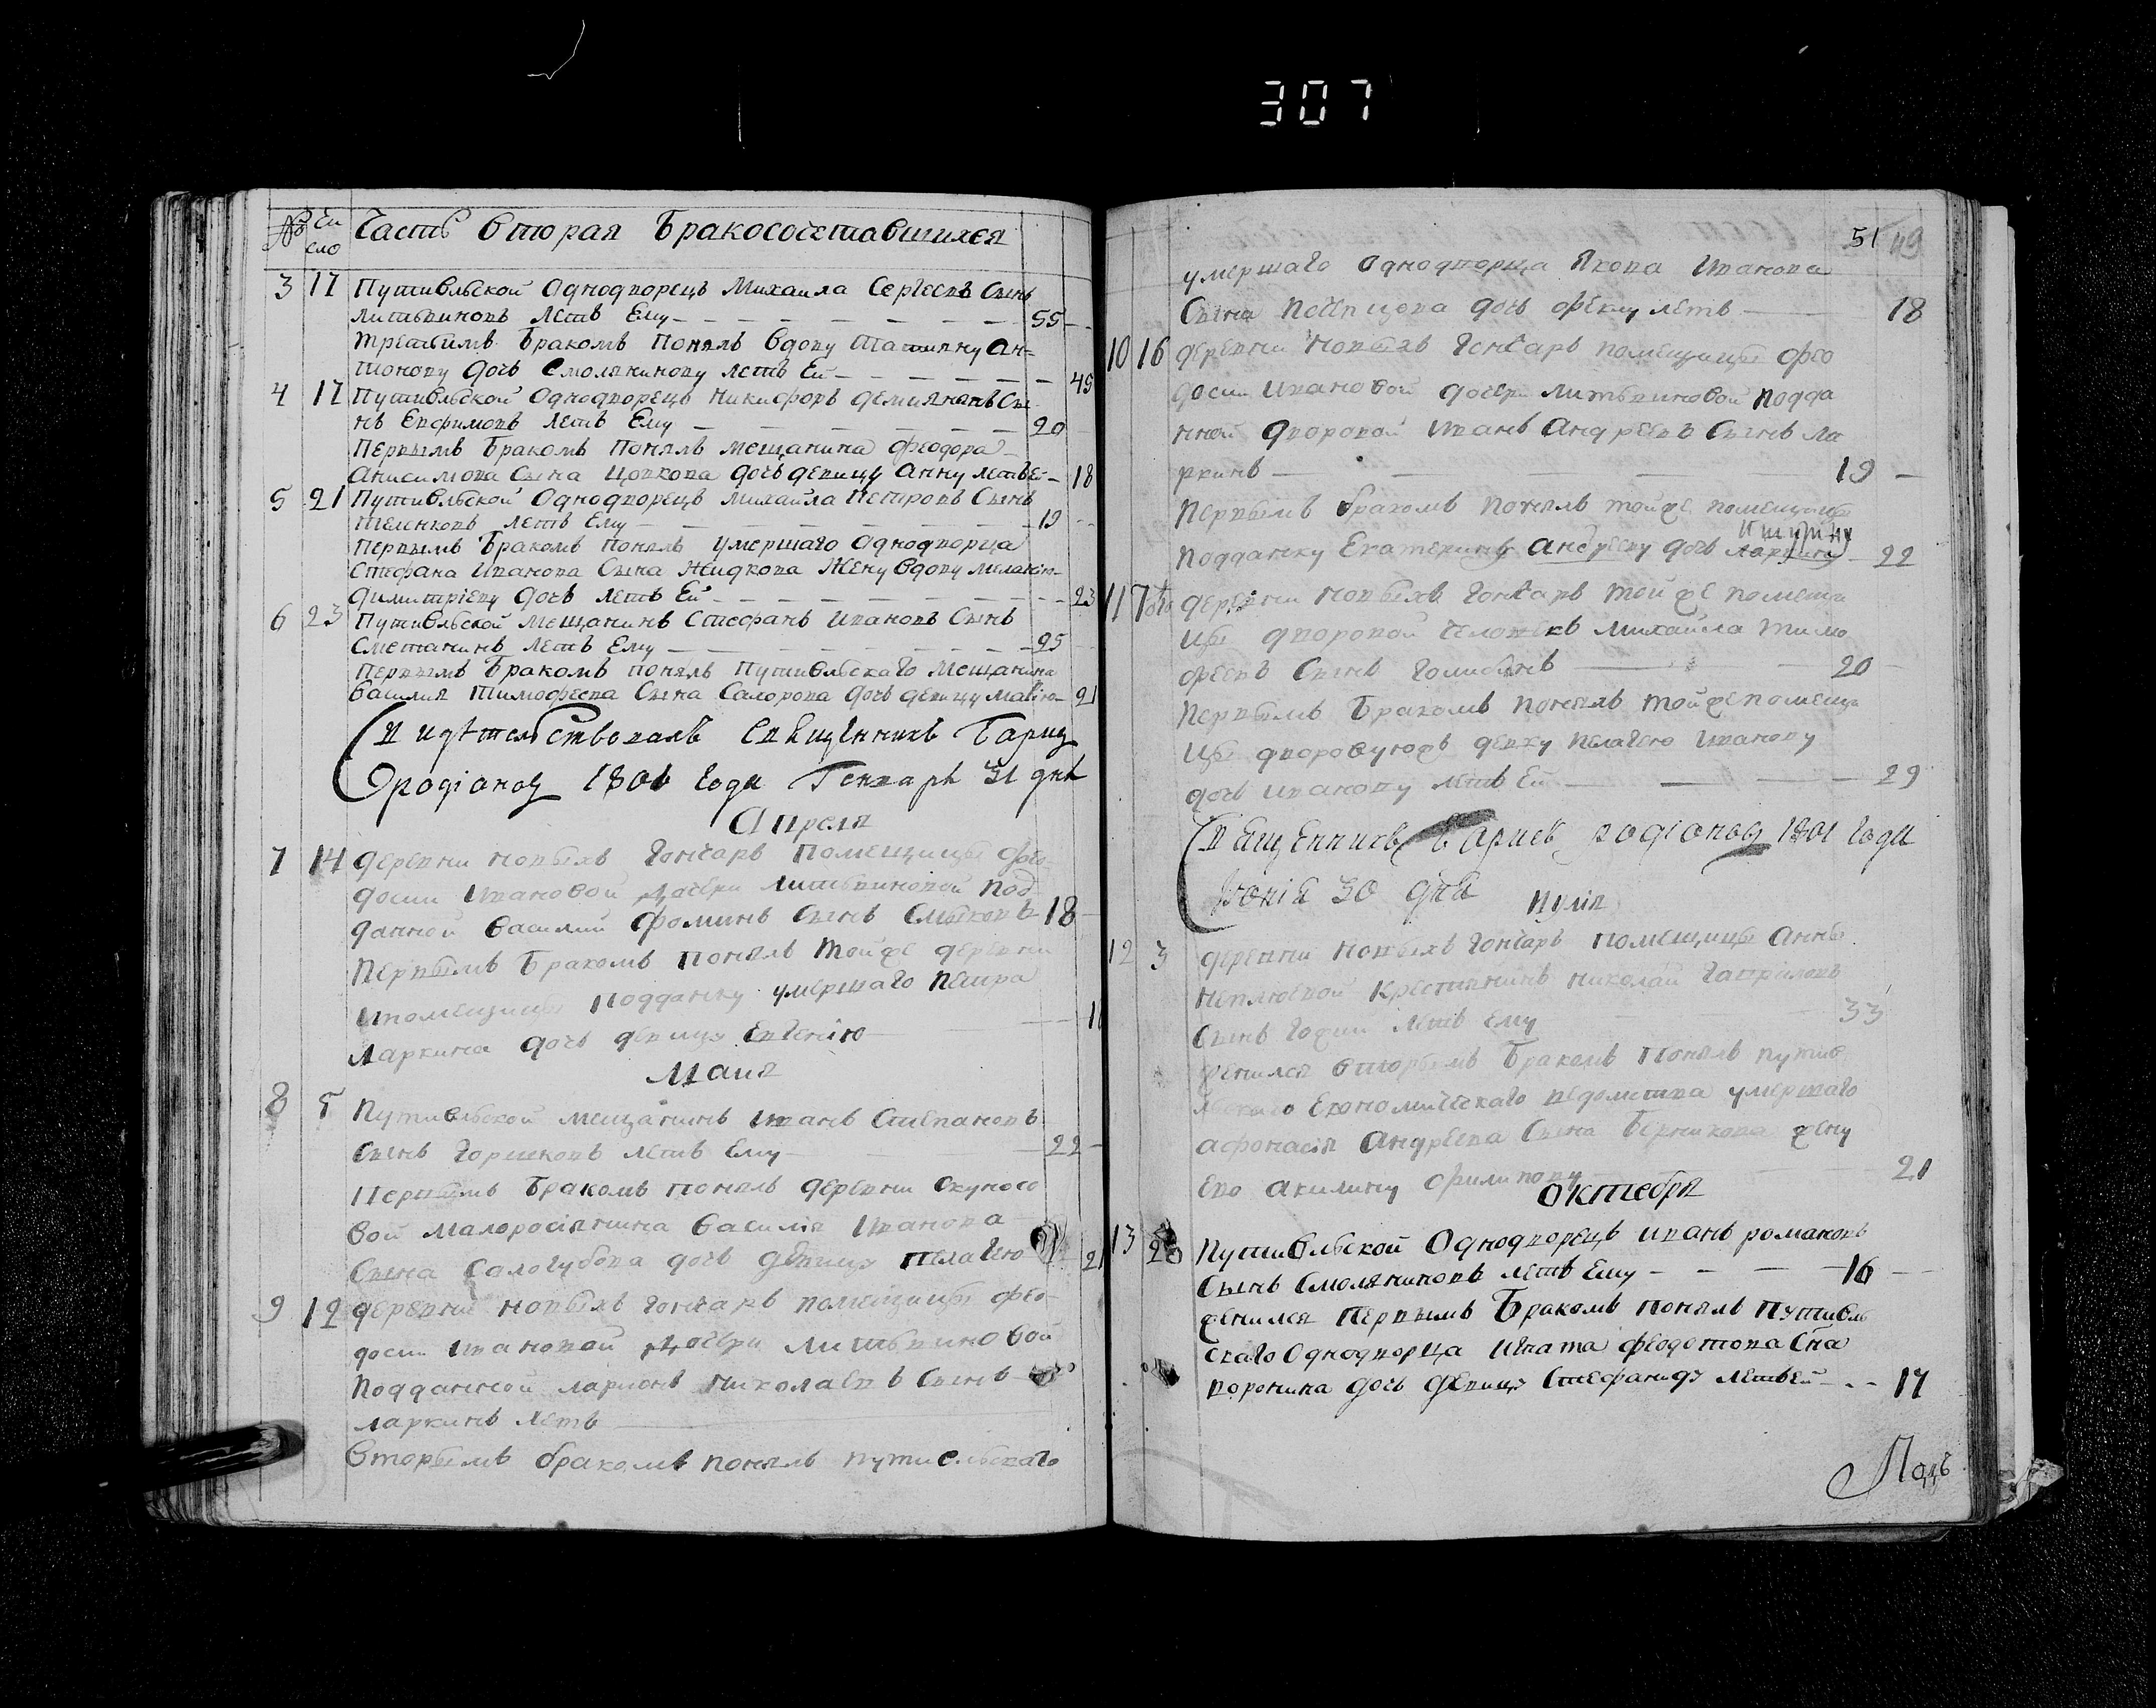 307
№ Чи
сло
Часть вторая Бракосочетавшихся
3 17 Путивльской Однодворецъ Михаила Сергеевъ Сынъ
литвиновъ летъ Ему 55
третьимъ Бракомъ Понялъ вдову татияну Ан=
тонову дочь Смолянинову летъ Ей 45
4 17 Путивльской Однодворецъ Никифоръ демияновъ Сы
нъ Ефимовъ летъ Ему 20
Первымъ Бракомъ Понялъ мещанина феодора
Анисимова Сына Цопкова дочь девицу Анну летъ Ей 18
5 21 Путивльской Однодворецъ Михайла Петровъ Сынъ
теленковъ летъ Ему 19
Первымъ Бракомъ понялъ умершаго Однодворца
Стефана Иванова Сына Жидкова Жену вдову меланію
димитріеву дочь летъ Ей 23
6 23 Путивльской мещанинъ Стефанъ Ивановъ Сынъ
Сметанинъ летъ Ему 25
Первымъ Бракомъ понялъ Путивльскаго Мещанина
Василия тимофеева Сына Саморова дочь девицу Мавію 21
Свидѣтельствовалъ Священникъ Барис
Родіонов 1801 Года Генваря 31 дня
Апреля
7 14 деревни новыхъ Гончаръ Помещицы фео
досии Ивановой дочери литвиновой под
данной василий фоминъ Сынъ Смыковъ 18
Первымъ Бракомъ понялъ тойже деревни
ипомещицы подданку умершаго петра
ларкина дочь девицу Евгению
Маия
8 5 Путивльской мещанинъ иванъ Степановъ
Сынъ Горшковъ летъ Ему 22
Первымъ Бракомъ понялъ деревни Скуносо
вой малоросіянина василія Иванова
Сына Сологубова дочь девицу пелагею 21
9 12 деревни новыхъ гончаръ помещицы фео
досии ивановой дочери литвиновой
Подданной ларионъ николаевъ Сынъ
ларкинъ летъ
вторымъ бракомъ понялъ путивльскаго
51 49
умершаго однодворца Якова Иванова
Сына почепцова дочь феклу летъ 18
10 16 деревни новыхъ гончаръ помещицы фео
досии ивановой дочери литвиновой подда
нной дворовой иванъ Андреевъ Сынъ ла
ркинъ 19
Первымъ бракомъ понялъ тойже помещицы
подданку Екатерину Андрееву дочь ларкину 22
11 Тогожъ деревни новыхъ гончаръ тойже помещи
цы дворовой человекъ михайла тимо
феевъ Сынъ 20
Первымъ Бракомъ понялъ тойже помещи
цы дворовуюжъ девку пелагею иванову
дочь иванову летъ Ей 29
Священникъ Барисъ родіонов 1801 Года
Іюнія 30 дня
Иулія
12 3 деревни новыхъ гончаръ помещицы анны
неплюевой крестиянинъ николай гавріловъ
Сынъ летъ Ему 33
женился вторымъ Бракомъ понялъ путив
льскаго економическаго ведомства умершаго
афонасія Андреева Сына жену
Ево акилину филипову 21
Октебря
13 20 Путивльской Однодворецъ иванъ романовъ
Сынъ Смоляниновъ летъ Ему 16
женился Первымъ Бракомъ понялъ путивль
скаго Однодворца игната феодотова Сна
воронина дочь девицу Стефаниду летъ ей 17